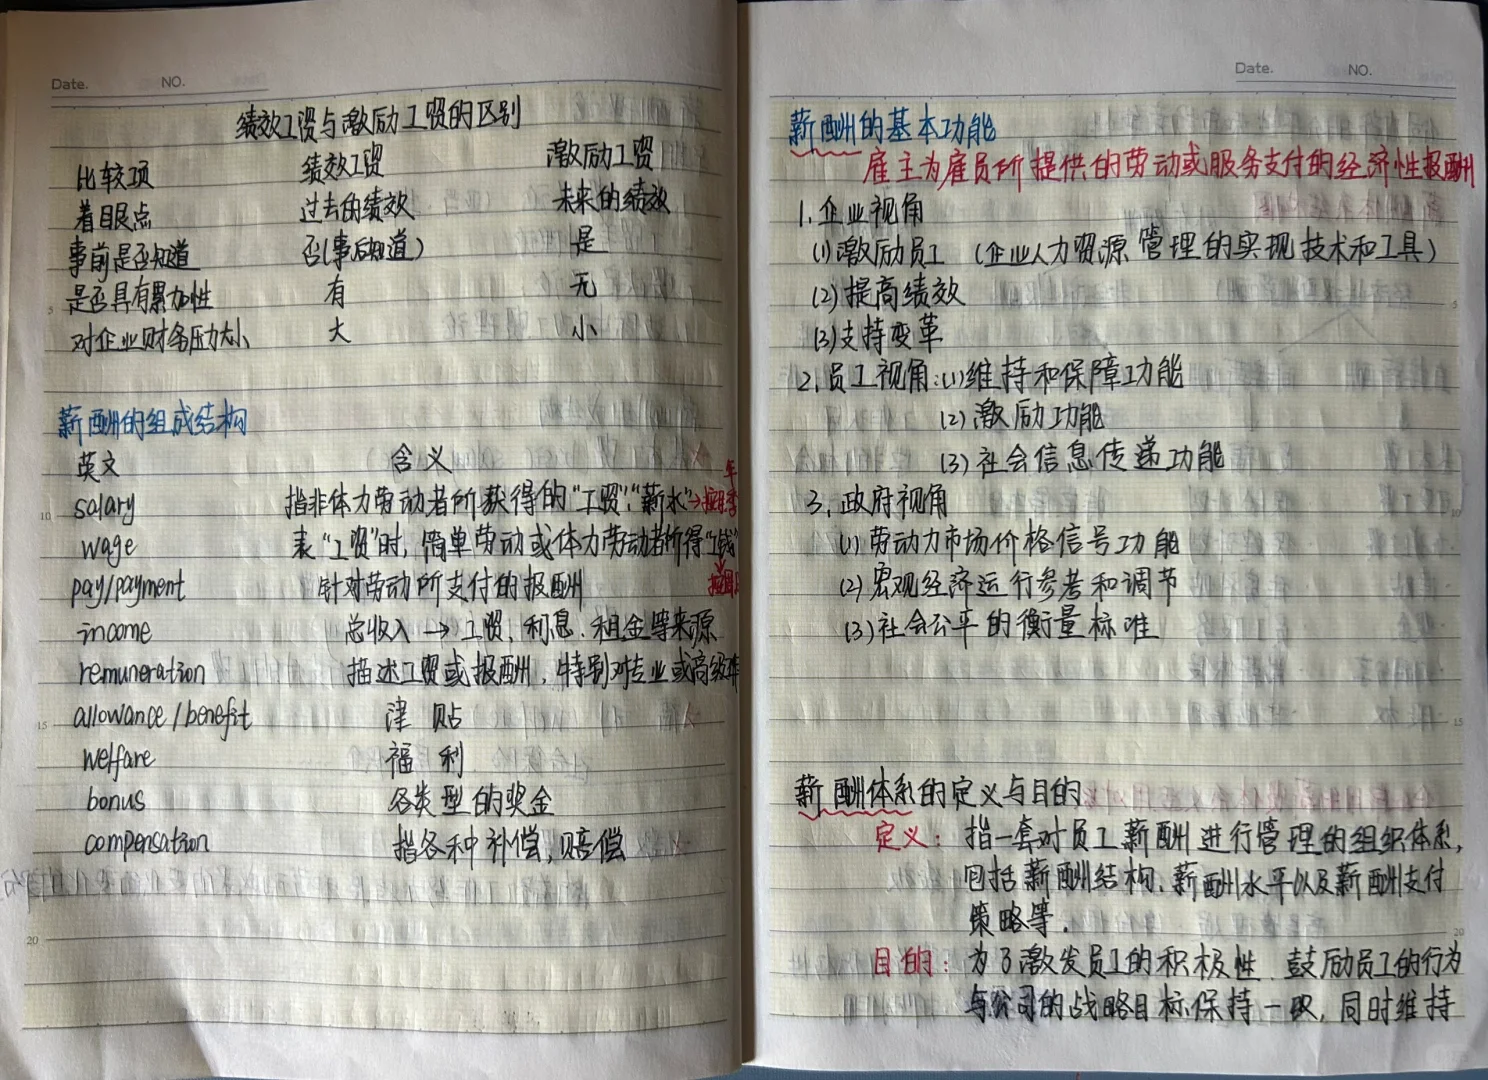 Date. NO.
绩效工资与激励工资的区别
比较项 绩效工资 激励工资
着眼点 过去的绩效 未来的绩效
事前是否知道 否(事后知道) 是
是否具有累加性 有 无
对企业财务压力大小 大 小
薪酬的组成结构
英文 含义
年
salary 指非体力劳动者所获得的"工资""薪水"→按
wage 表"工资"时,简单劳动或体力劳动者所得"工钱"
pay/payment 针对劳动所支付的报酬 按周
income 总收入→工资、利息、租金等来源
remuneration 描述工资或报酬,特别对专业或高级
allowance/benefit 津贴
welfare 福利
bonus 各类型的奖金
compensation 指各种补偿,赔偿
Date. NO.
薪酬的基本功能
雇主为雇员所提供的劳动或服务支付的经济性报酬
1.企业视角
(1)激励员工 (企业人力资源管理的实现技术和工具)
(2)提高绩效
(3)支持变革
2.员工视角:(1)维持和保障功能
(2)激励功能
(3)社会信息传递功能
3.政府视角
(1)劳动力市场价格信号功能
(2)宏观经济运行参考和调节
(3)社会公平的衡量标准
薪酬体系的定义与目的
定义:指一套对员工薪酬进行管理的组织体系,
包括薪酬结构、薪酬水平以及薪酬支付
策略等.
目的:为了激发员工的积极性、鼓励员工的行为
与公司的战略目标保持一致,同时维持